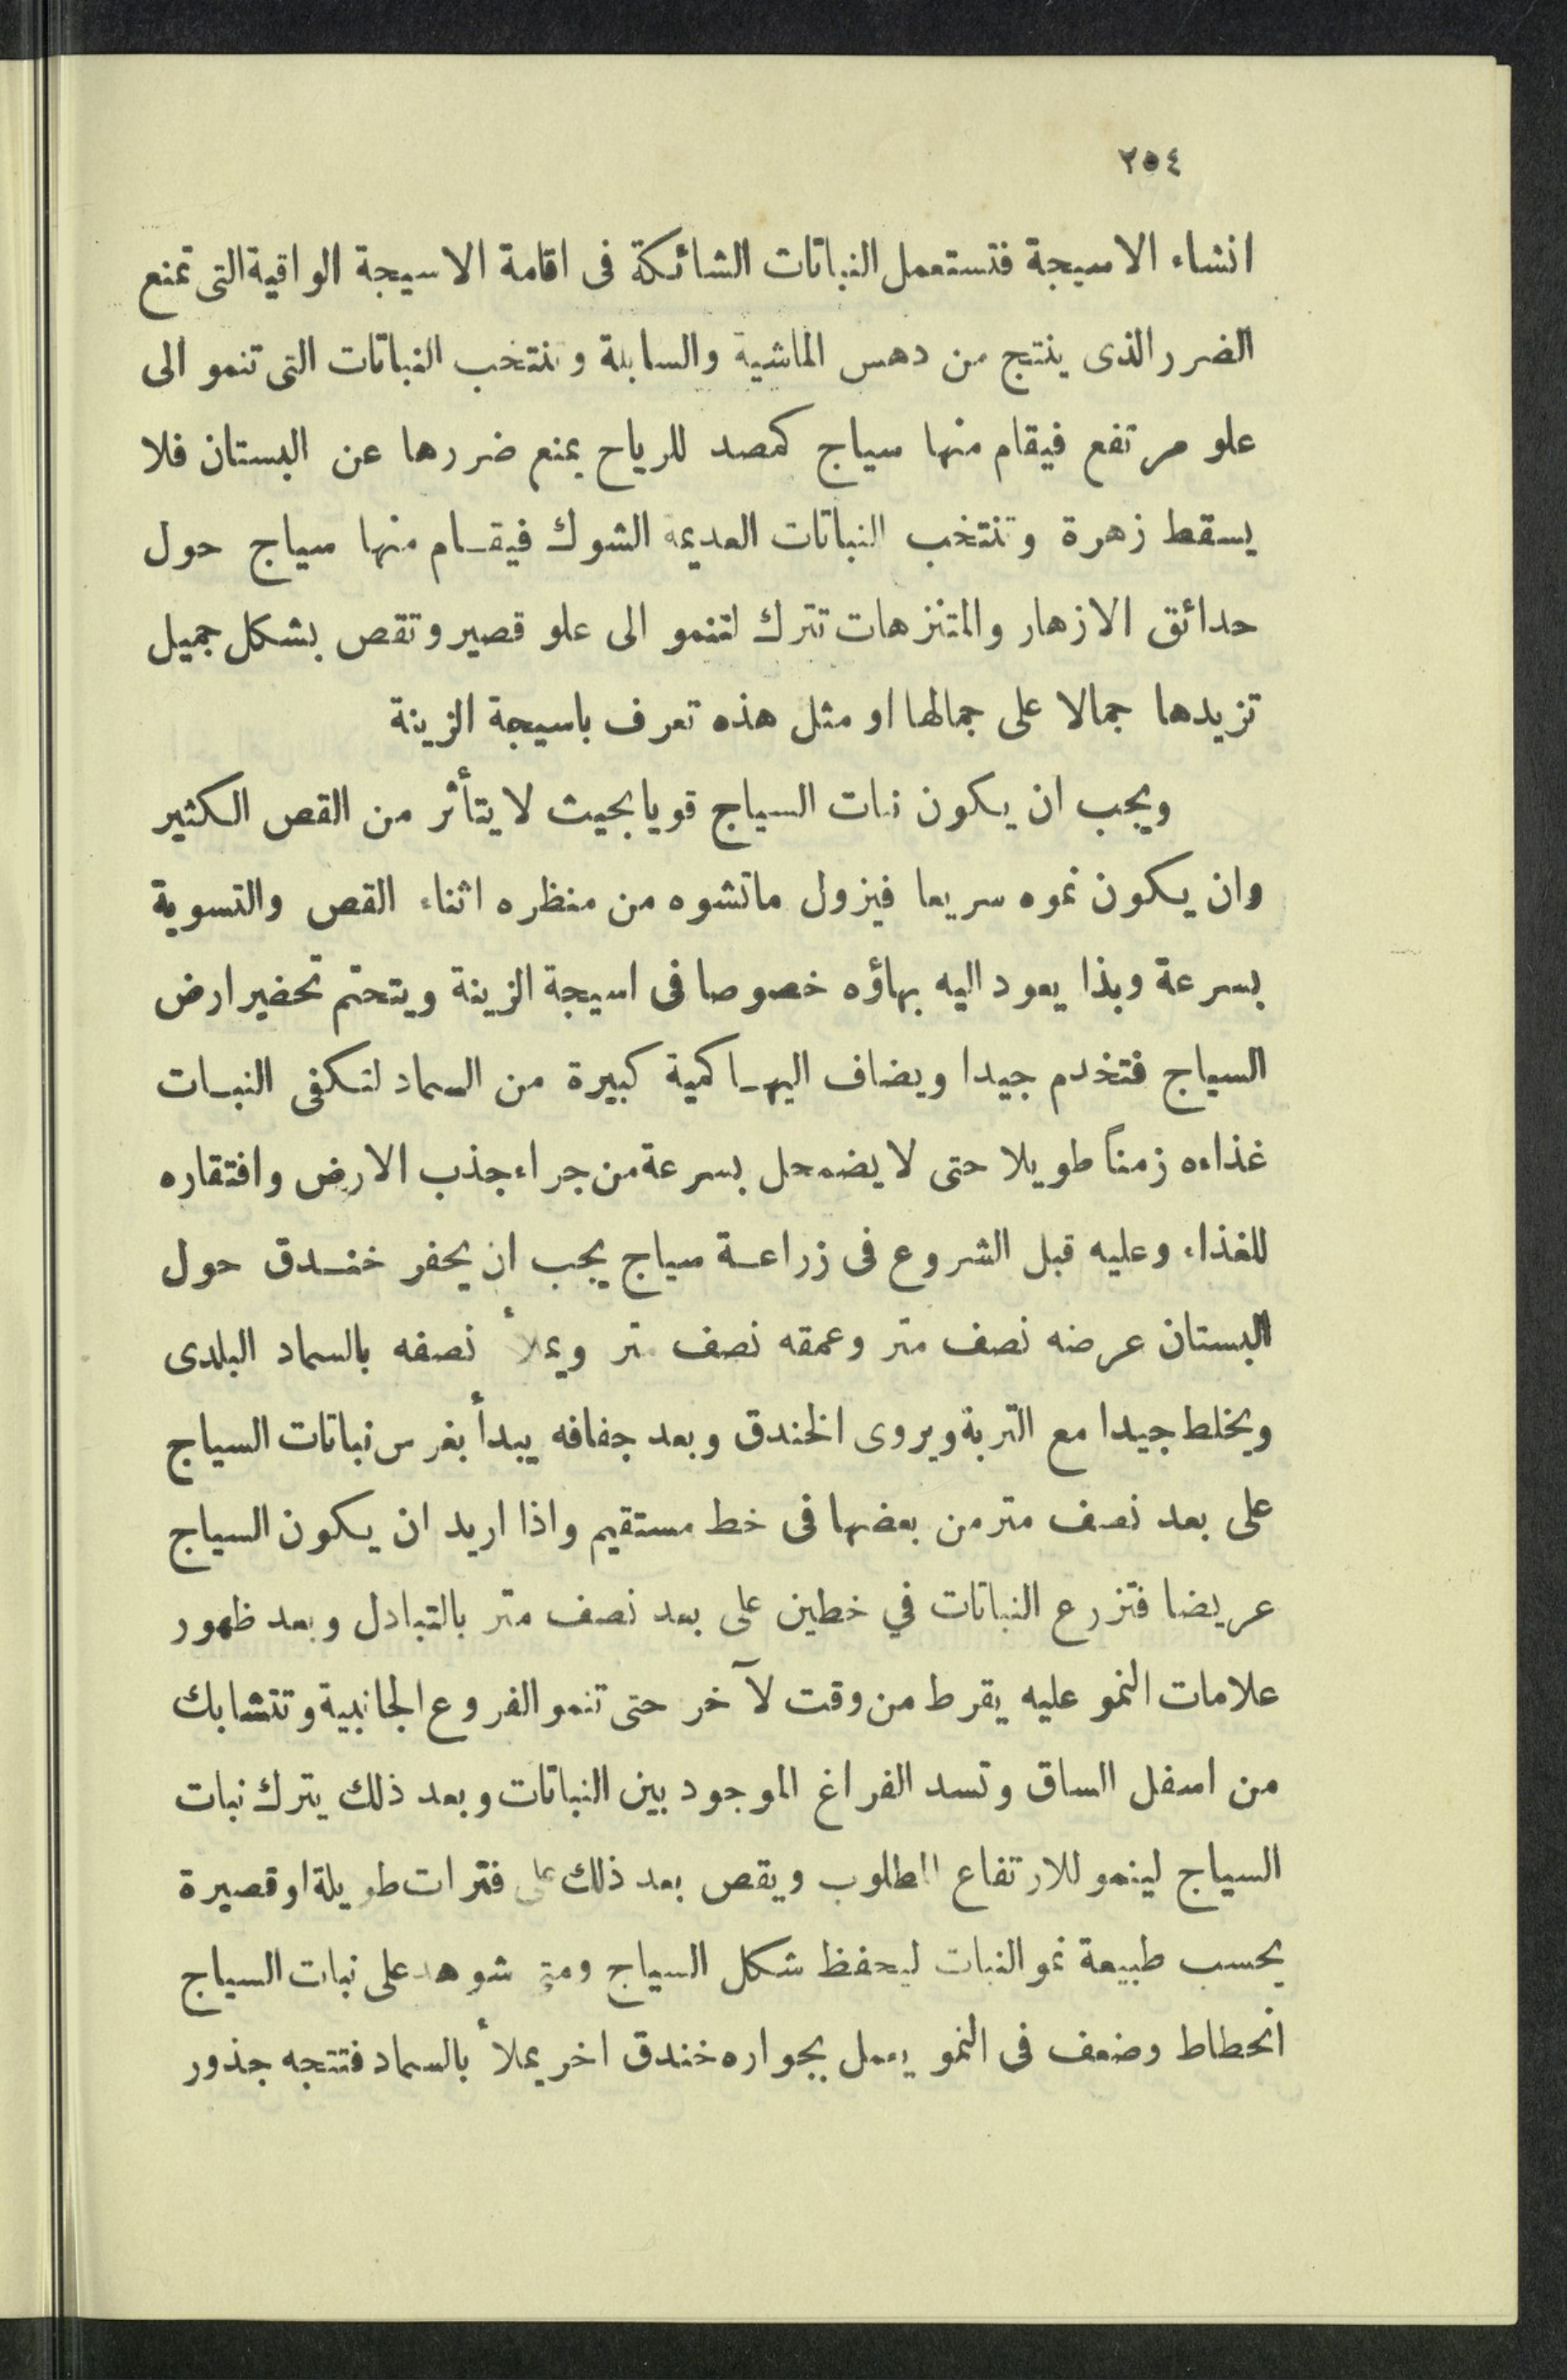 ٢٥٤
انشاء الاسيجة فتستعمل النباتات الشائكة فى اقامة الاسيجة الواقية التى تمنع
الضرر الذى ينتج من دهس الماشية والسابلة وتنتخب النباتات التى تنمو الى
علو مرتفع فيقام منها سياج كمصد للرياح يمنع ضررها عن البستان فلا
يسقط زهرة وتنتخب النباتات العديمة الشوك فيقـام منها سياج حول
حدائق الازهار والمتنزهات تترك لتنمو الى علو قصير وتقص بشكل جميل
تزيدها جمالا على جمالها او مثل هذه تعرف باسيجة الزينة
ويجب ان يكون نبات السياج قويا بحيث لا يتأثر من القص الكثير
وان يكون نموه سريعا فيزول ماتشوه من منظره اثناء القص والتسوية
بسرعة وبذا يعود اليه بهاؤه خصوصا فى اسيجة الزينة ويتحتم تحضير ارض
السياج فتخدم جيدا ويضاف اليهـا كمية كبيرة من السماد لتكفى النبـات
غذاءه زمناً طويلا حتى لا يضمحل بسرعة من جراء جذب الارض وافتقاره
للغذاء وعليه قبل الشروع فى زراعـة سياج يجب ان يحفر خنـدق حول
البستان عرضه نصف متر وعمقه نصف متر ويملأ نصفه بالسماد البلدى
ويخلط جيدا مع التربة ويروى الخندق وبعد جفافه يبدأ بغرس نباتات السياج
على بعد نصف متر من بعضها فى خط مستقيم واذا اريد ان يكون السياج
عريضا فتزرع النباتات في خطين على بعد نصف متر بالتبادل وبعد ظهور
علامات النمو عليه يقرط من وقت لآخر حتى تنمو الفروع الجانبية وتتشابك
من اسفل الساق وتسد الفراغ الموجود بين النباتات وبعد ذلك يترك نبات
السياج لينمو للارتفاع المطلوب ويقص بعد ذلك على فترات طويلة او قصيرة
بحسب طبيعة نمو النبات ليحفظ شكل السياج ومتى شوهد على نبات السياج
انحطاط وضعف فى النمو يعمل بجواره خندق اخر يملأ بالسماد فتتجه جذور